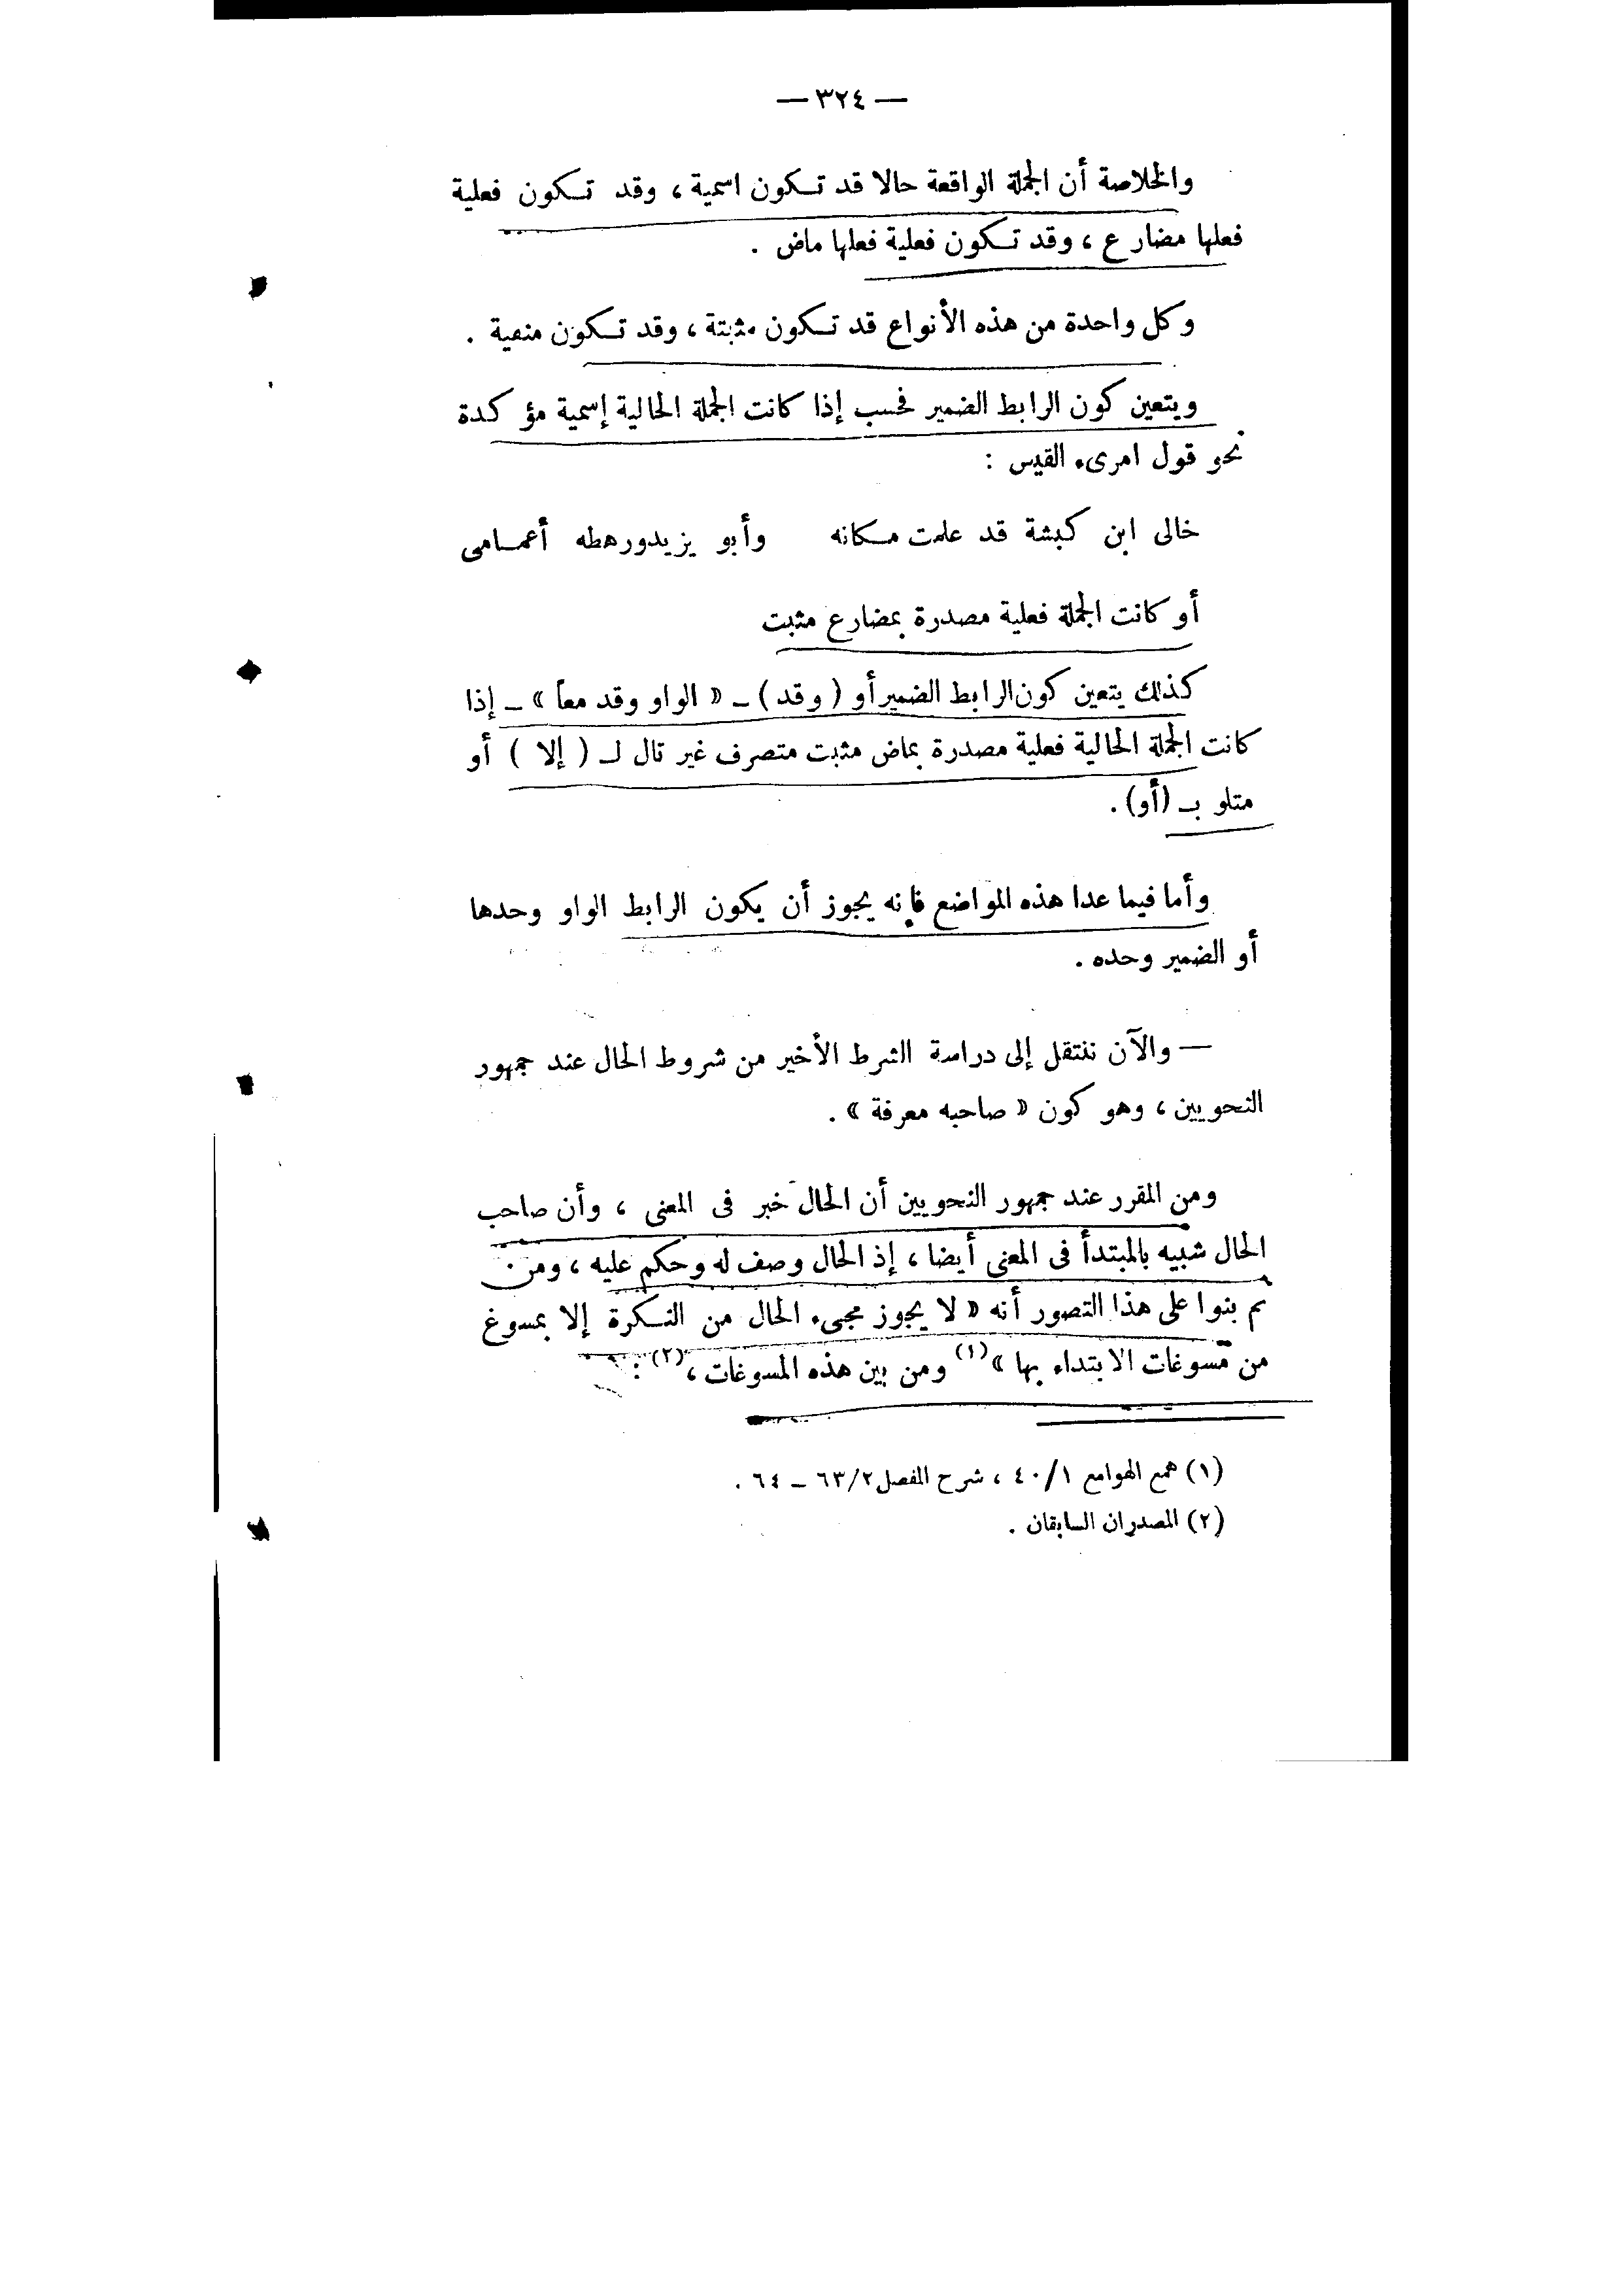 — ٣٢٤ —
والخلاصة أن الجملة الواقعة حالا قد تكون اسمية ، وقد تكون فعلية
فعلها مضارع ، وقد تكون فعلية فعلها ماض .
وكل واحدة من هذه الأنواع قد تكون مثبتة ، وقد تكون منفية .
ويتعين كون الرابط الضمير فحسب إذا كانت الجملة الحالية إسمية مؤكدة
نحو قول امرىء القيس :
خالى ابن كبشة قد علمت مكانه وأبو يزيدورهطه أعمامى
أو كانت الجملة فعلية مصدرة بمضارع مثبت
كذلك يتعين كون الرابط الضمير أو ( وقد ) ــ « الواو وقد معاً » ــ إذا
كانت الجملة الحالية فعلية مصدرة بماض مثبت متصرف غير تال لـ ( إلا ) أو
متلو بـ (أو) .
وأما فيما عدا هذه المواضع فإنه يجوز أن يكون الرابط الواو وحدها
أو الضمير وحده .
— والآن ننتقل إلى دراسة الشرط الأخير من شروط الحال عند جمهور
النحويين ، وهو كون « صاحبه معرفة » .
ومن المقرر عند جمهور النحويين أن الحال خبر فى المعنى ، وأن صاحب
الحال شبيه بالمبتدأ فى المعنى أيضا ، إذ الحال وصف له وحكم عليه ، ومن
ثم بنوا على هذا التصور أنه « لا يجوز مجىء الحال من النكرة إلا بمسوغ
من مسوغات الابتداء بها » (١) ومن بين هذه المسوغات ، (٢) :
(١) همع الهوامع ١/ ٤٠ ، شرح المفصل ٢/ ٦٣ ــ ٦٤ .
(٢) المصدران السابقان .